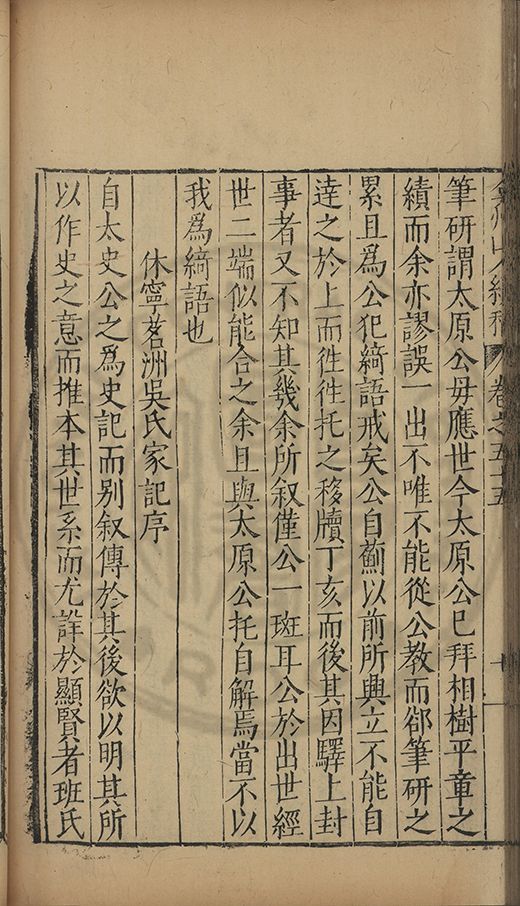 弇州山人續稿 卷之五十五 十一
筆研謂太原公毋應世今太原公已拜相樹平章之
績而余亦謬誤一出不唯不能從公教而郤筆研之
累且爲公犯綺語戒矣公自薊以前所興立不能自
達之於上而徃徃托之移牘丁亥而後其因驛上封
事者又不知其幾余所叙僅公一班耳公於出世經
世二端似能合之余且與太原公托自解焉當不以
我爲綺語也
休寧茗洲吳氏家記序
自太史公之爲史記而别叙傳於其後欲以明其所
以作史之意而推本其世系而尤詳於顯賢者班氏